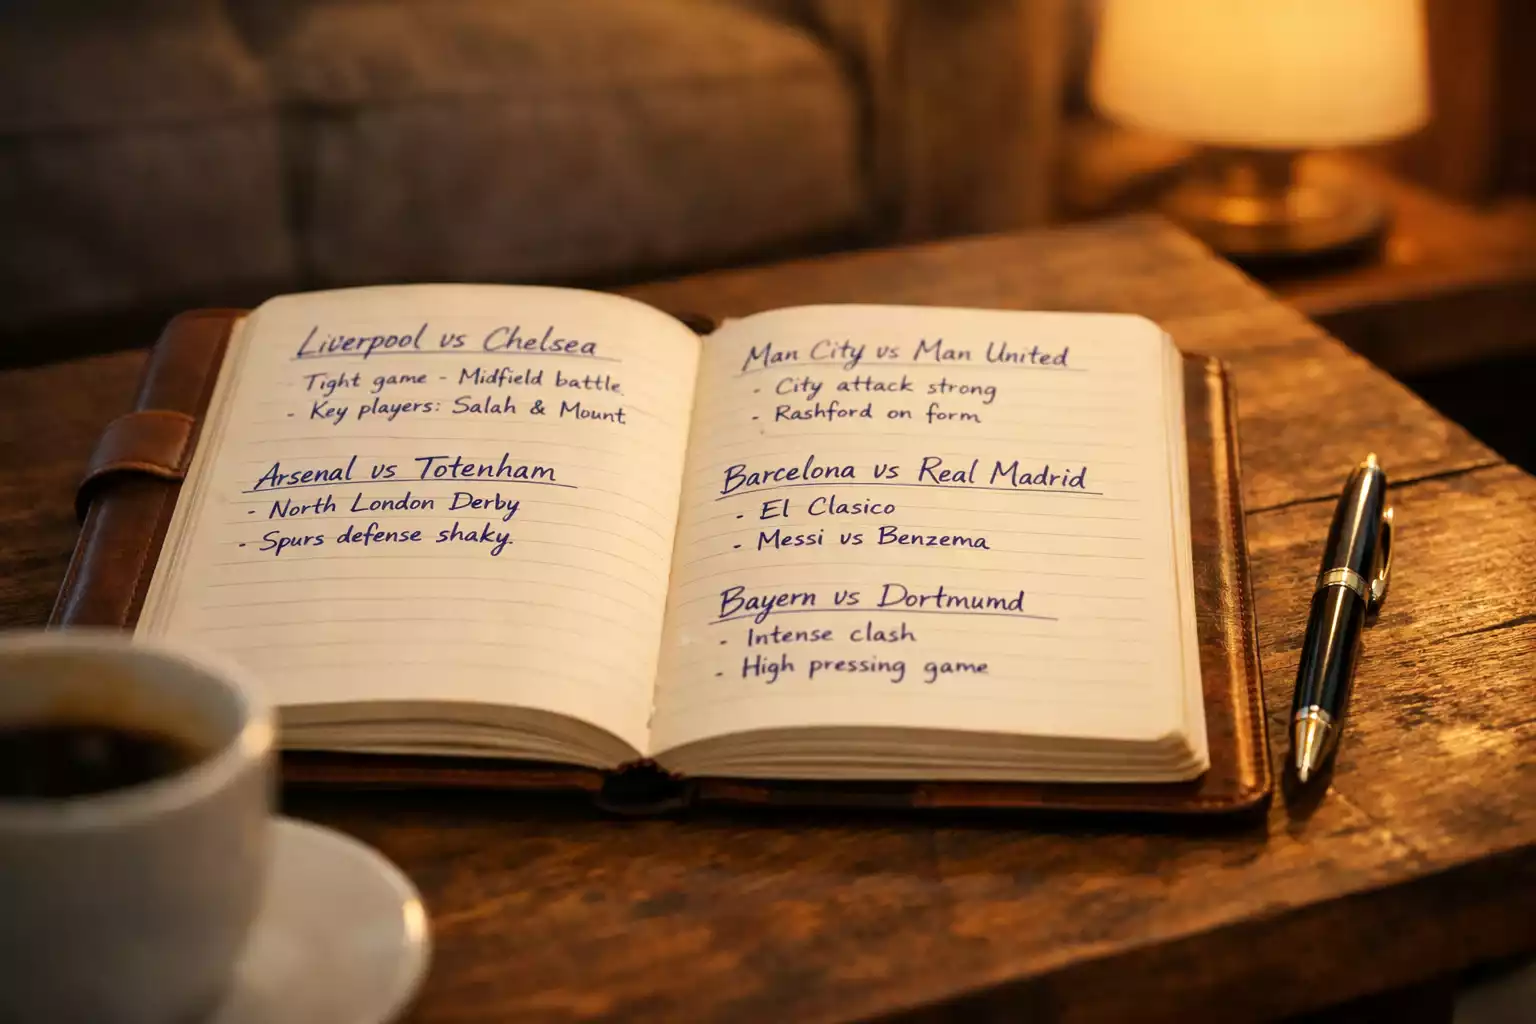 Liverpool vs Chelsea
Tight game - Midfield battle
- Key players: Salah & Mount
Arsenal vs Totenham
- North London Derby
- Spurs defense shaky.
Man City vs Man United
- City attack strong
- Rashford on form
Barcelona vs Real Madrid
- El Clasico
- Messi vs Benzema
Bayern vs Dortmumd
- Intense clash
- High pressing game